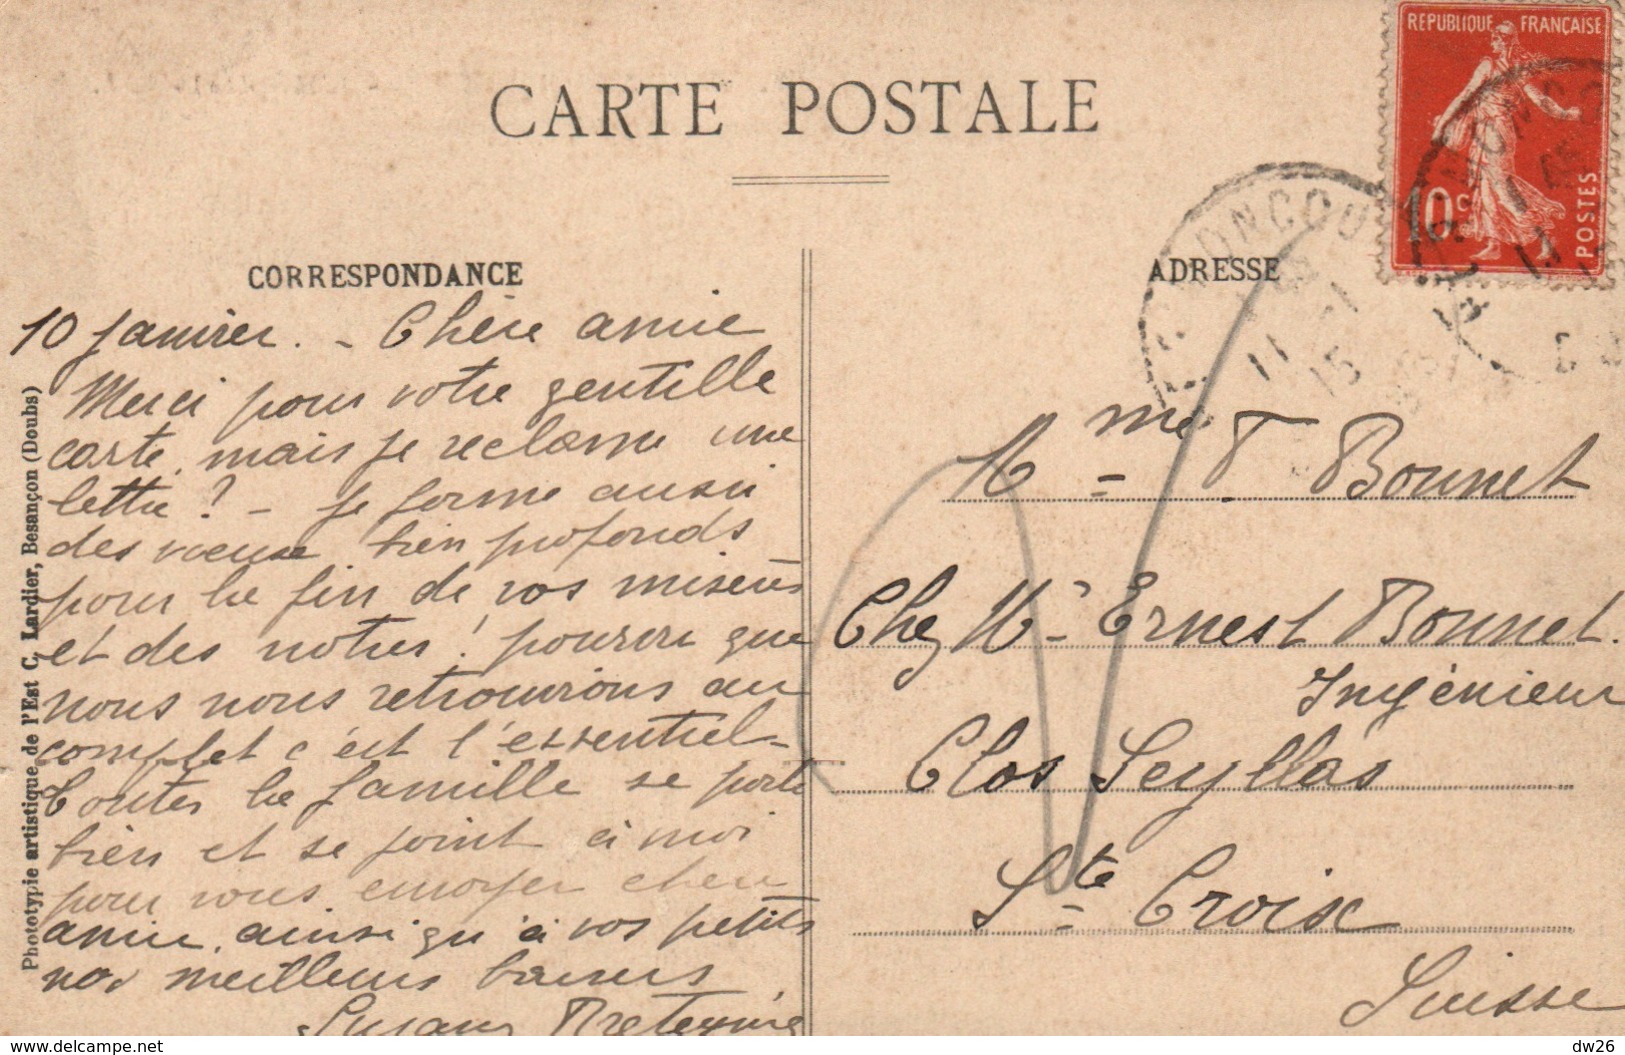 CARTE POSTALE
REPUBLIQUE FRANÇAISE
10c
POSTES
CORRESPONDANCE
10 Janvier. - Chère amie
Merci pour votre gentille
carte, mais je reclame une
lettre? - Je forme aussi
des voeux bien profonds
pour la fin de vos misères
et des notres! pourvu que
nous nous retrouvions au
complet c'est l'essentiel -
toute la famille se porte
bien et se joint à moi
pour vous envoyer chère
amie, ainsi qu'à vos petits
nos meilleurs baisers
ADRESSE
11 15
Mme T. Bonnet
Chez Mr Ernest Bonnet.
Ingénieur
Clos Seyllas
Ste Croix
Suisse
Phototypie artistique de l'Est C. Lardier, Besançon (Doubs)
www.delcampe.net
dw26